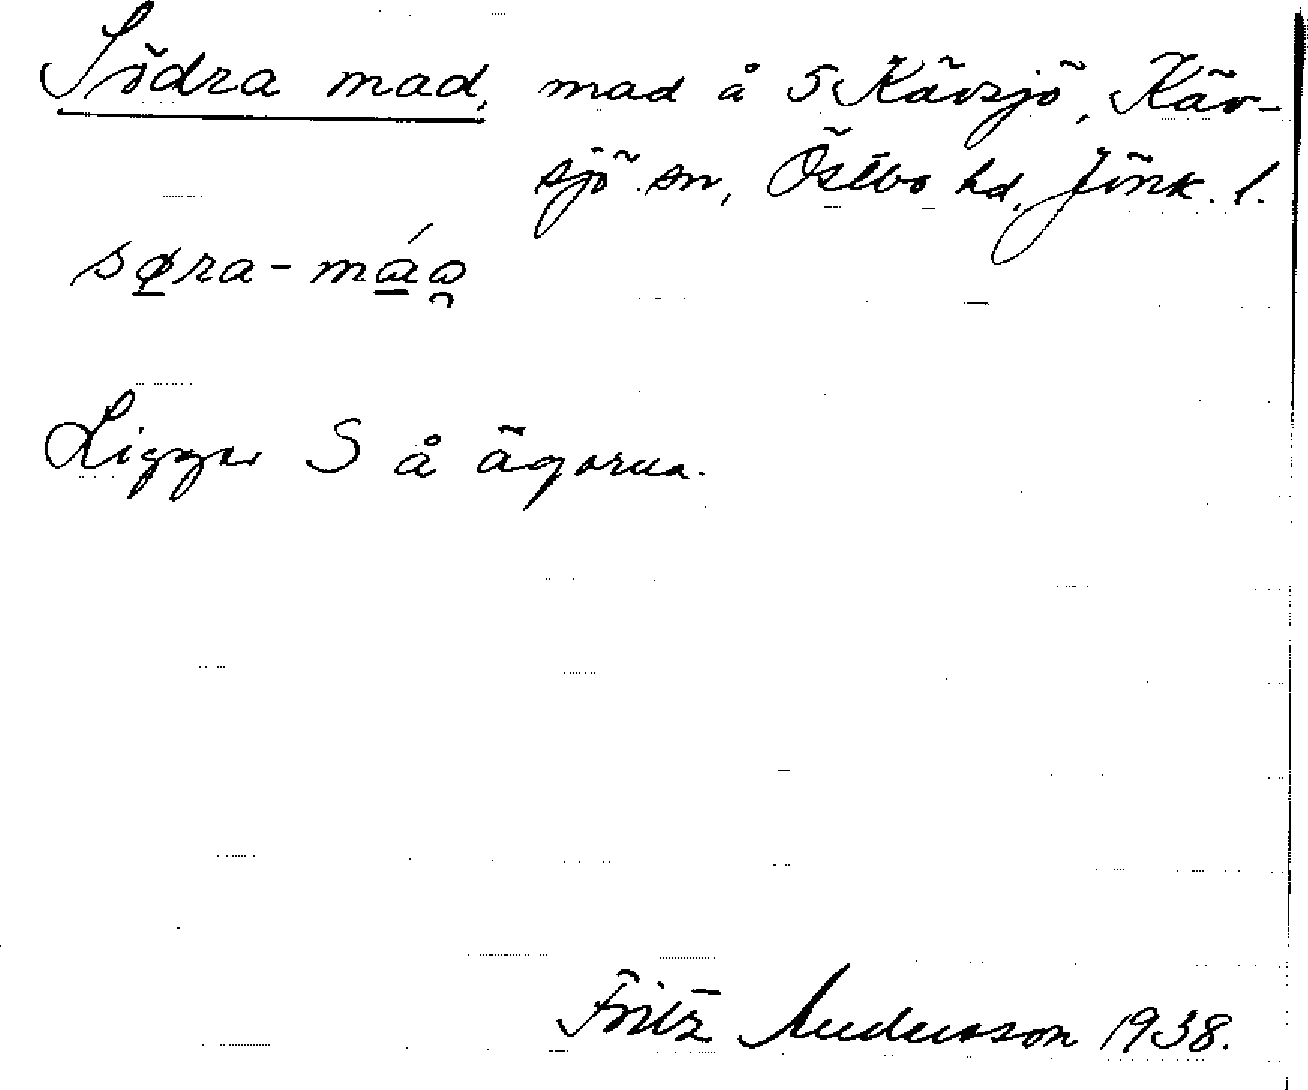 Södra mad, mad å S Kävsjö, Käv-
sjö sn, Östbo hd, Jönk. l.
søra-máa̯
Ligger S å ägorna.
Fritz Andersson 1938.